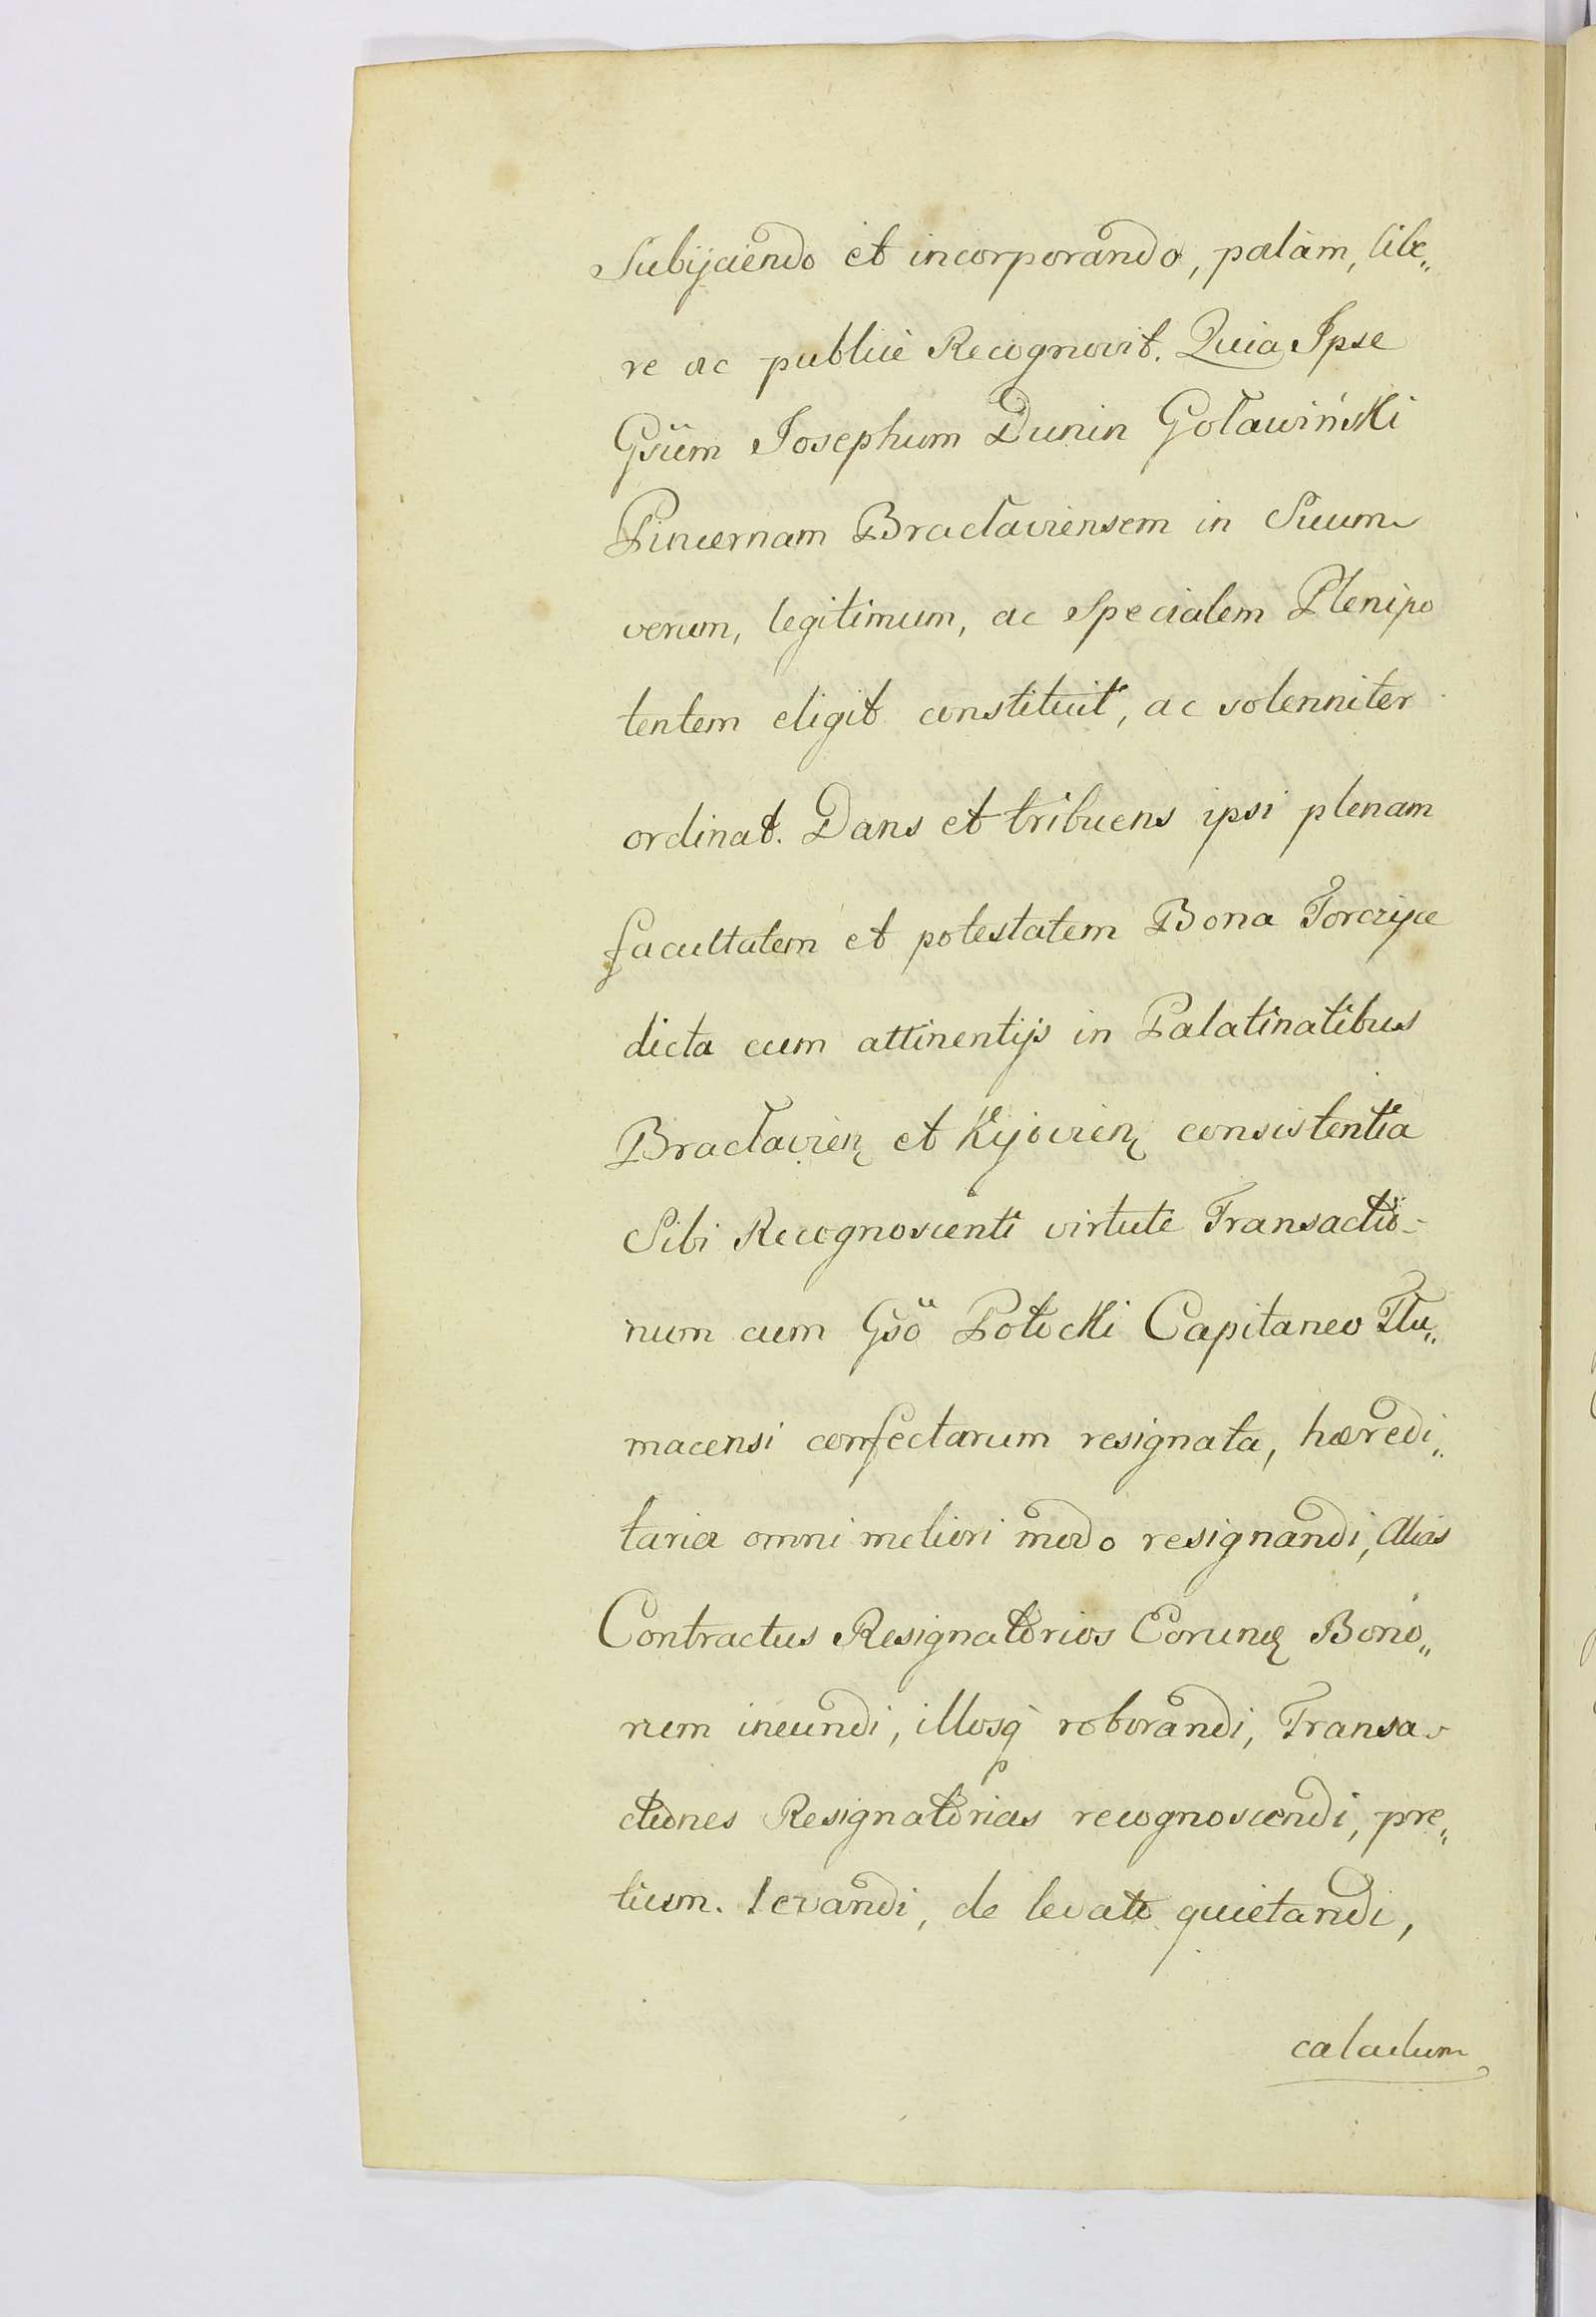 Subijciendo et incorporando, palàm, libe„
re ac publicè Recognovit. Quia Ipse
Gsũm Josephum Dunin Goławiński
Pincernam Bracłaviensem in Suum
verum, legitimum, ac Specialem Plenipo
tentem eligit constituit, ac solenniter
ordinat. Dans et tribuens ipsi plenam
facultatem et potestatem Bona Torczyce
dicta cum attinentijs in Palatinatibus
Bracłavien̨ et Kijovien̨ consistentia
Sibi Recognoscenti virtute Transactio-
num cum Gsõ Potocki Capitaneo Tłu„
macensi confectarum resignata, hæredi„
taria omni meliori modo resignandi, Alias
Contractus Resignatorios Eorunq̨ Bono„
rum ineundi, illosq̀ roborandi, Transa-
ctiones Resignatorias recognoscendi, pre„
tium. levandi, de levato quietandi,
calculum